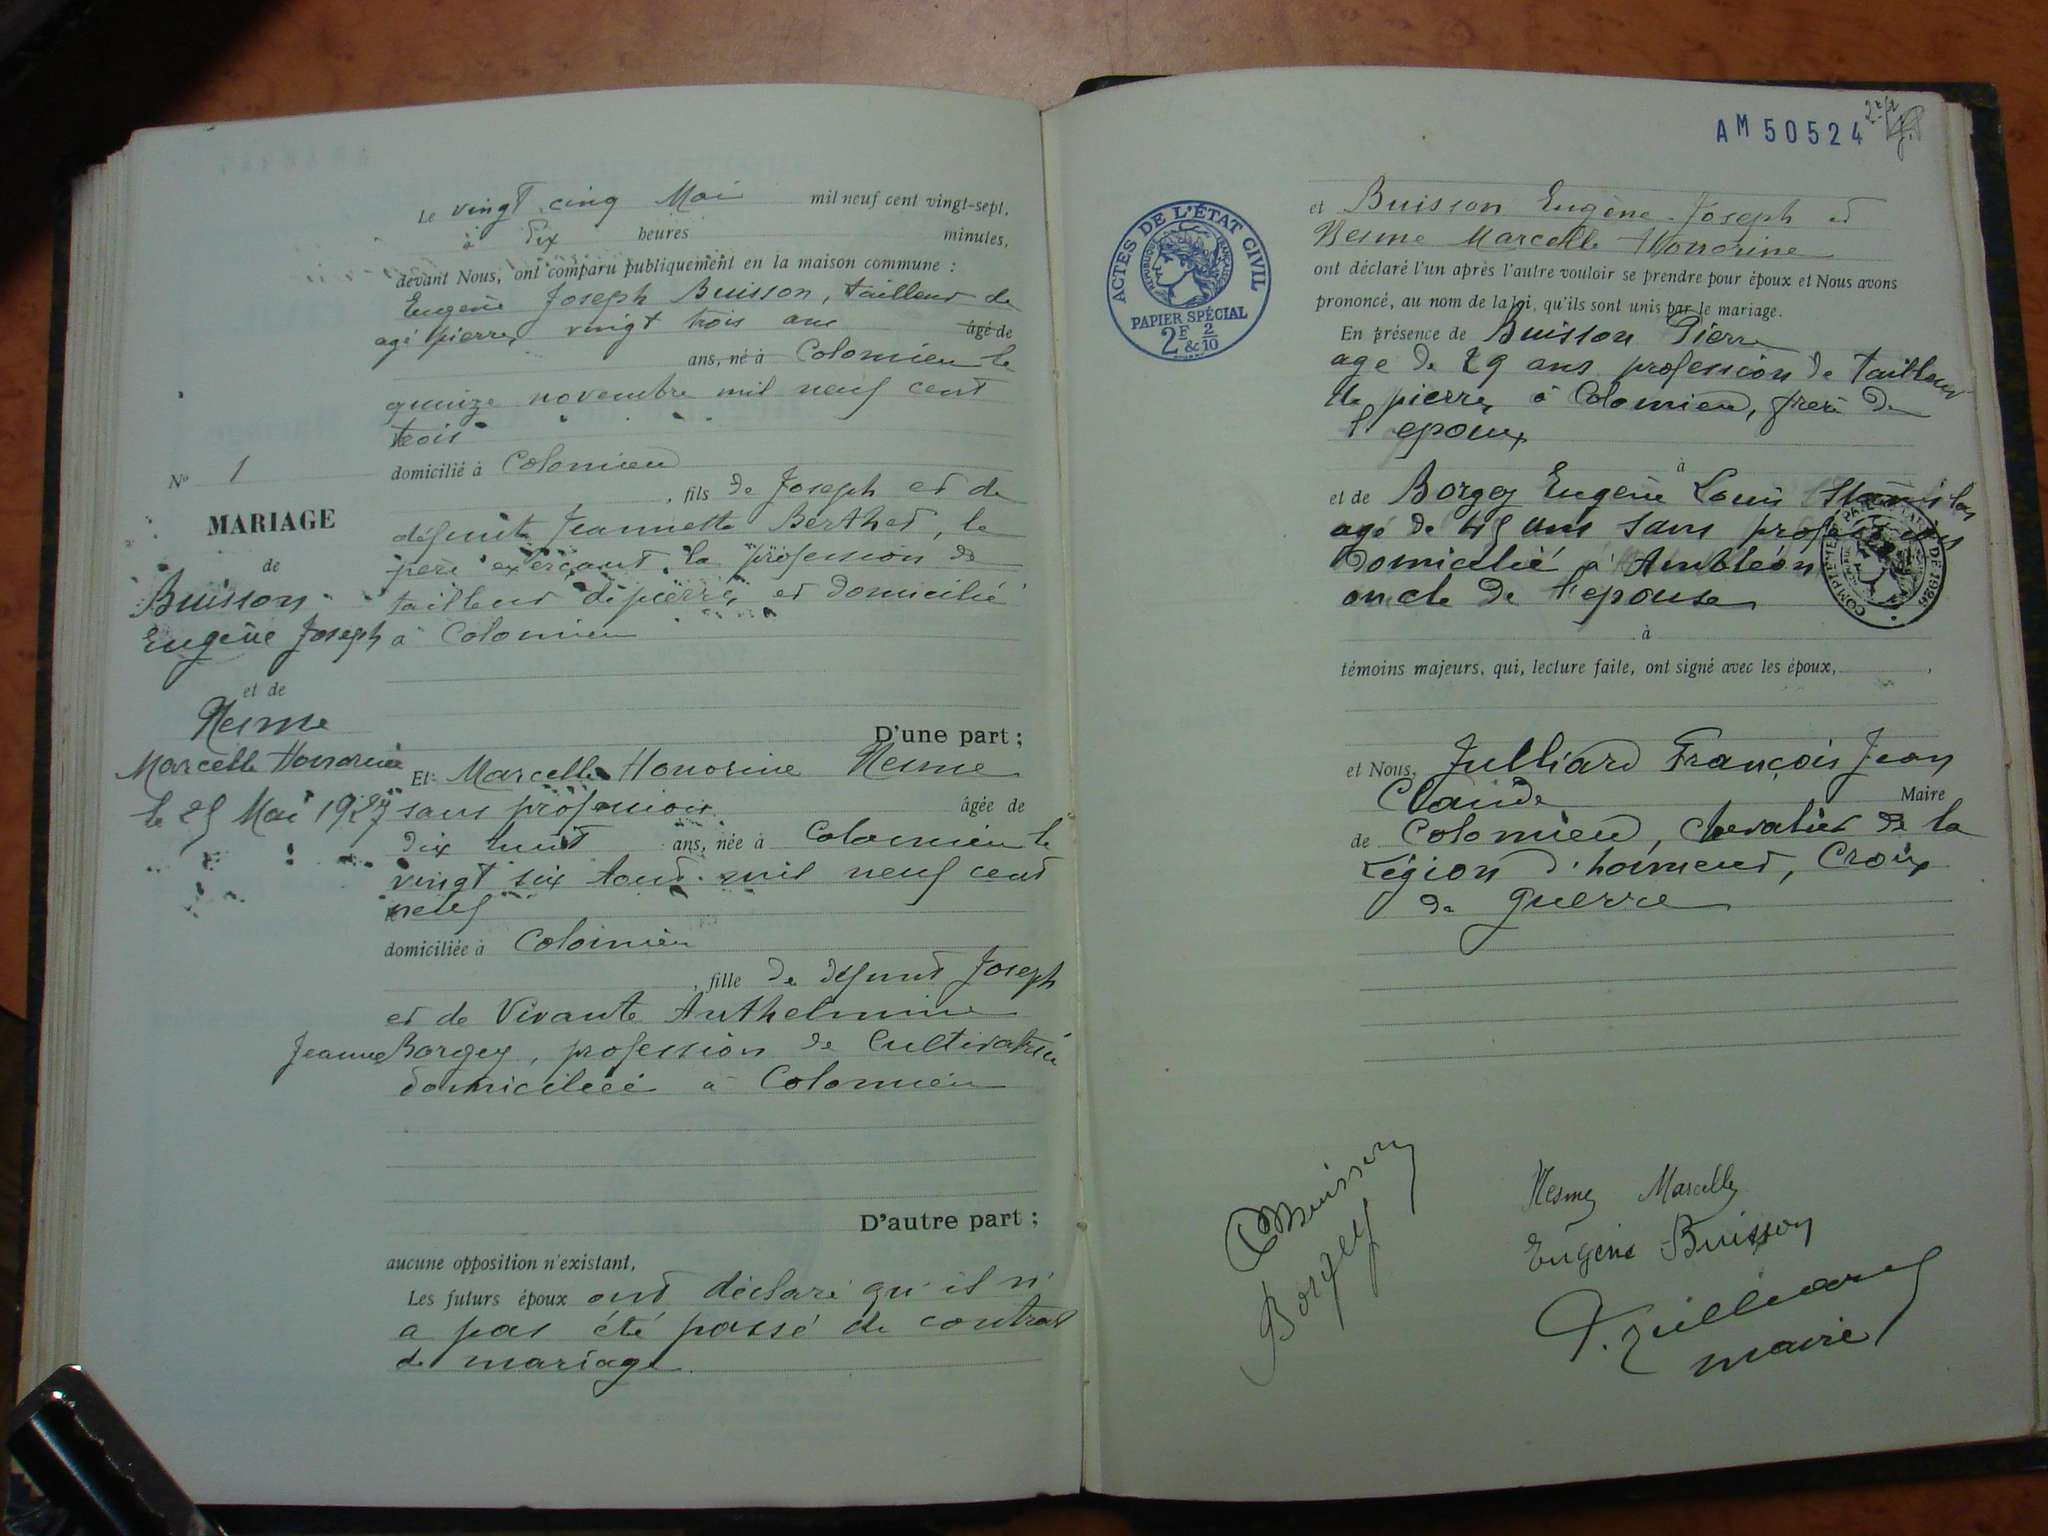 Le vingt cinq Mai mil neuf cent vingt-sept,
à dix heures minutes,
devant Nous, ont comparu publiquement en la maison commune :
Eugène Joseph Buisson, tailleur de
agé pierre, vingt trois ans âgé de
ans, né à Colomieu le
quinze novembre mil neuf cent
trois
domicilié à Colomieu
, fils de Joseph et de
défunte Jeannette Berthet, le
père exerçant la profession de
tailleur de pierre, et domicilié
à Colomieu
D'une part ;
Et Marcelle Honorine Nesme
sans profession âgée de
dix huit ans, née à Colomieu le
vingt six Aout mil neuf cent
neuf
domiciliée à Colomieu
, fille de défunt Joseph
et de Vivante Anthelmine
Jeanne Borgey, profession de Cultivatrice
domiciliée à Colomieu
D'autre part ;
aucune opposition n'existant,
Les futurs époux ont déclaré qu'il n'
a pas été passé de contrat
de mariage
No 1
MARIAGE
de
Buisson
Eugène Joseph
et de
Nesme
Marcelle Honorine
le 25 Mai 1927
AM 50524
ACTES DE L'ÉTAT CIVIL
RÉPUBLIQUE FRANÇAISE
PAPIER SPÉCIAL
2F & 2/10
et Buisson Eugène Joseph et
Nesme Marcelle Honorine
ont déclaré l'un après l'autre vouloir se prendre pour époux et Nous avons
prononcé, au nom de la loi, qu'ils sont unis par le mariage.
En présence de Buisson Pierre
age de 29 ans profession de tailleur
de pierre, à Colomieu, frère de
l'epoux
à
et de Borgey Eugène Louis Stanislas
agé de 45 ans sans profession
Domicilié à Ambléon
oncle de l'epouse
COMPLÉMENT DE 1926
à
témoins majeurs, qui, lecture faite, ont signé avec les époux,
et Nous, Julliard François Jean
Claude Maire
de Colomieu, Chevalier de la
Légion d'honneur, Croix
de guerre
Buisson
Borgey
Nesme Marcelle
Eugène Buisson
F. Julliard
maire